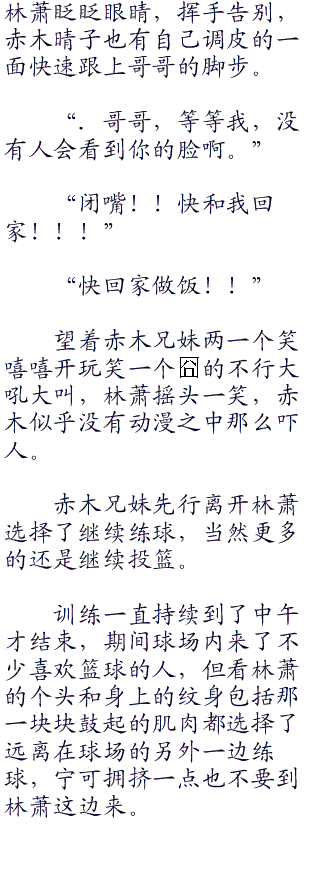 林萧眨眨眼睛，挥手告别，
赤木晴子也有自己调皮的一
面快速跟上哥哥的脚步。
“．哥哥，等等我，没
有人会看到你的脸啊。”
“闭嘴！！快和我回
家！！！”
“快回家做饭！！”
望着赤木兄妹两一个笑
嘻嘻开玩笑一个囧的不行大
吼大叫，林萧摇头一笑，赤
木似乎没有动漫之中那么吓
人。
赤木兄妹先行离开林萧
选择了继续练球，当然更多
的还是继续投篮。
训练一直持续到了中午
才结束，期间球场内来了不
少喜欢篮球的人，但看林萧
的个头和身上的纹身包括那
一块块鼓起的肌肉都选择了
远离在球场的另外一边练
球，宁可拥挤一点也不要到
林萧这边来。